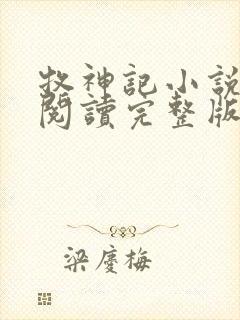 牧神記小說
閱讀完整版
梁慶梅